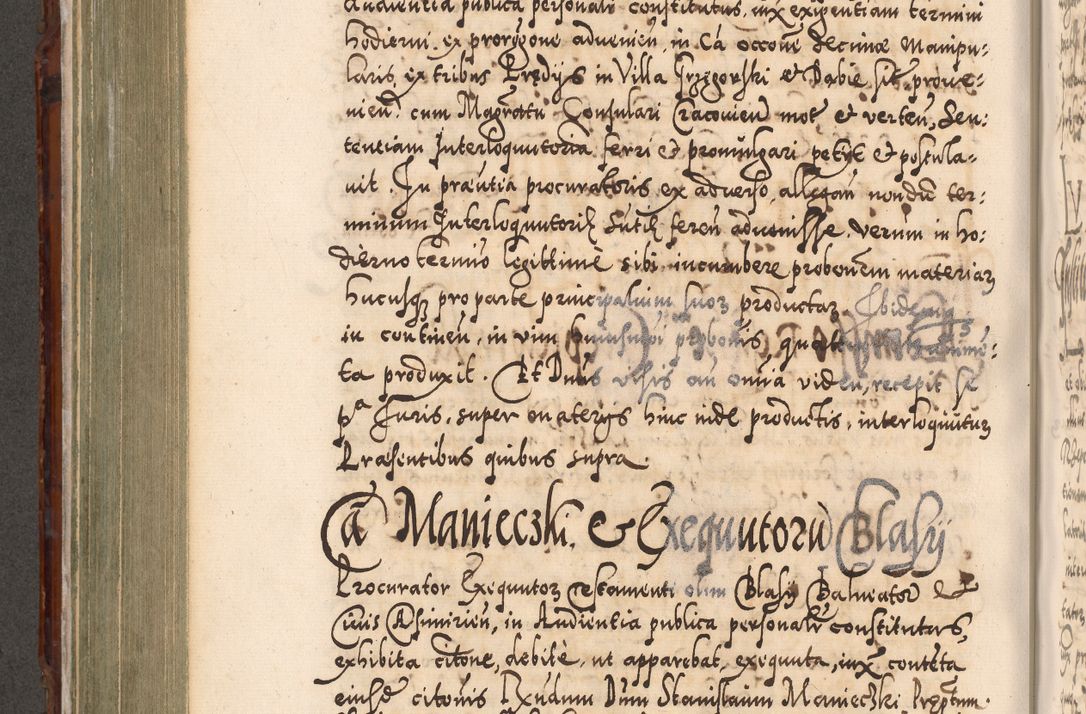 Audientia publica personaliter constitutus, iux exigentiam termini
hodierni, ex prorogōne advenien̄, in Cā occōne decimæ Manipu-
laris, ex tribus Prædijs in Villa Grzegorski et Dabie sit proue-
nien̄, cum Magrātu Consulari Cracovien̄ mot et verten̄, Sen-
tentiam Interloquutoria ferri et promulgari petijt et postula-
vit. In præntia procuratoris ex adverso, allegan̄ nondū ter-
minum Interloquutoriæ Sntiæ feren̄ advenisse, verum in ho-
dierno termīno legittimè sibi incumbere probōnem materiar
hucusq pro parte principalium suor productar
in continen̄, in vim huiusmōi probōnis,
ta produxit. Et Dnūs visis
pā Iuris, super materijs hinc inde productis, interloquutur
Præsentibus quibus supra.
Cā Manieczki, et Exequutorū Blasij
Procurator Exequutor testamenti olim Blasij Balneator
Civis Casimirien̄, in Audientia publica personalr constitutus,
exhibita citōne, debitè, ut apparebat, exequuta, iux contēta
eiusd̄ citōnis Rxndum Dnūm Stanislaum Manieczki Præptum